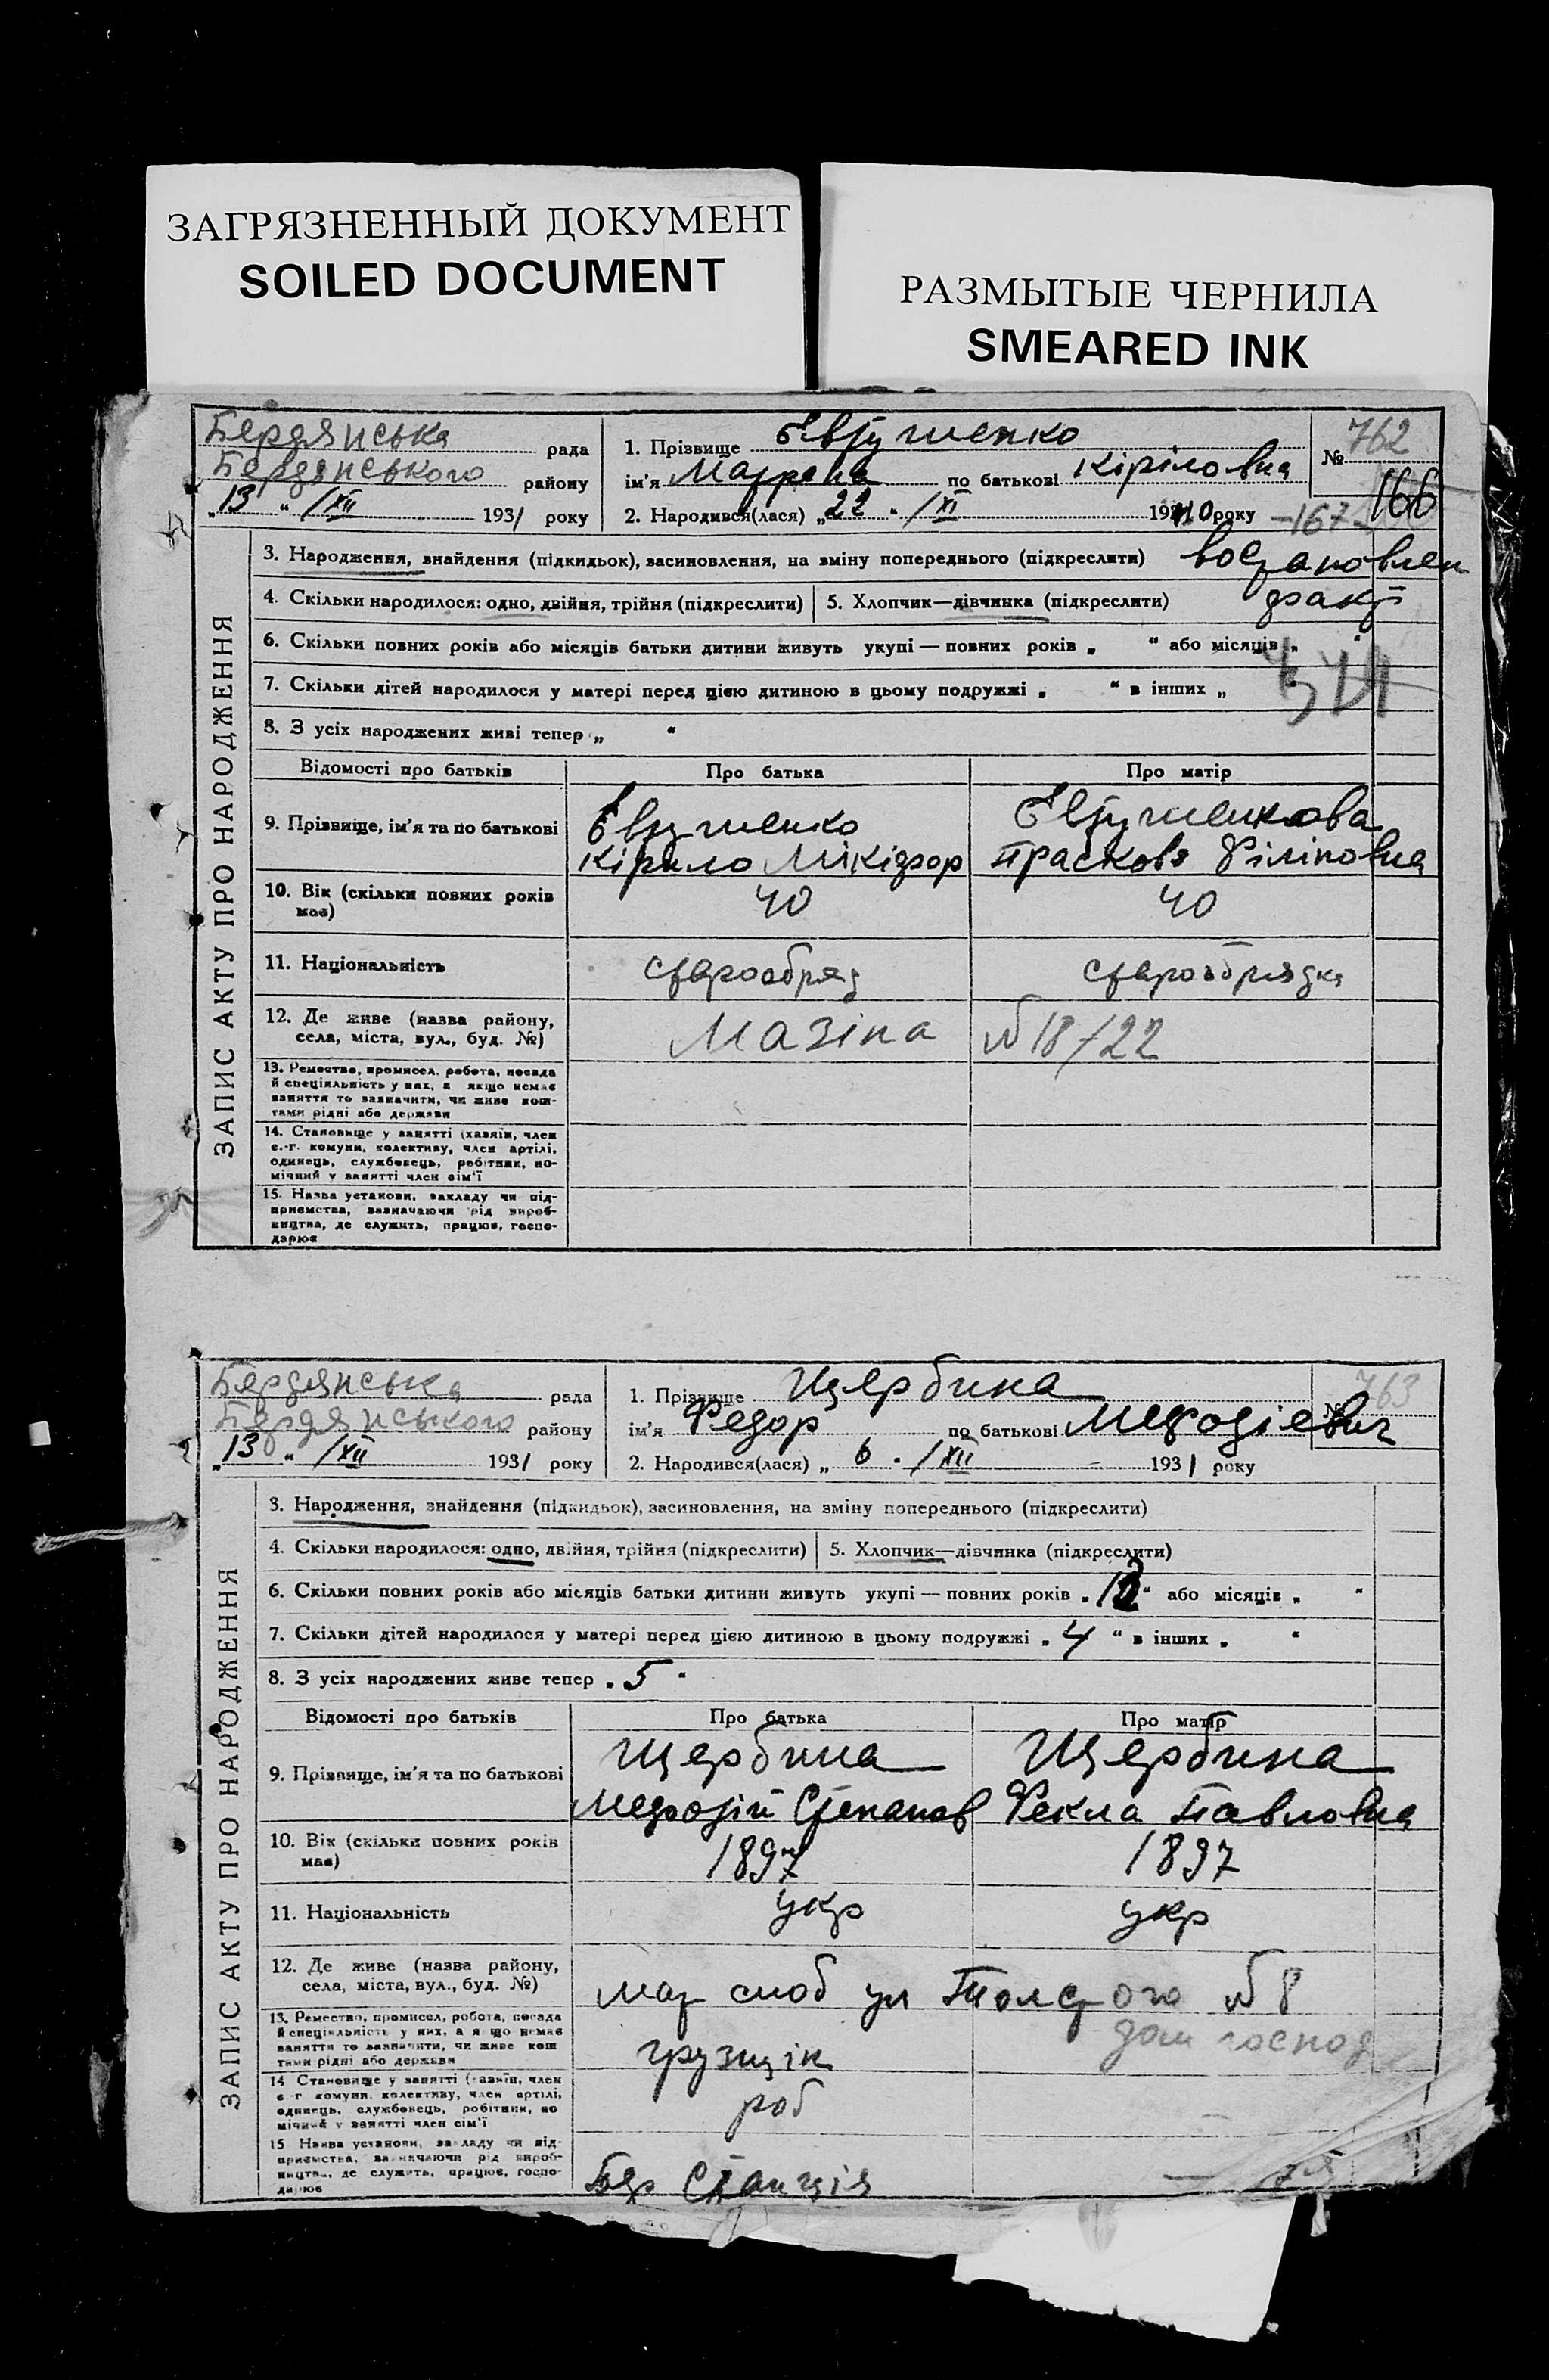 ЗАГРЯЗНЕННЫЙ ДОКУМЕНТ
SOILED DOCUMENT
РАЗМЫТЫЕ ЧЕРНИЛА
SMEARED INK
Бердянська рада
Бердянського району
„13“ /XII 1931 року
1. Прізвище Евтушенко
ім'я по батькові Кіріловна
2. Народився(лася) „22“ /XI 1910 року
№ 762
166
-167-
ЗАПИС АКТУ ПРО НАРОДЖЕННЯ
3. Народження, знайдення (підкидьок), засиновлення, на зміну попереднього (підкреслити) востановлен
4. Скільки народилося: одно, двійня, трійня (підкреслити) 5. Хлопчик—дівчинка (підкреслити) факт
6. Скільки повних років або місяців батьки дитини живуть укупі — повних років „ “ або місяців „ “
7. Скільки дітей народилося у матері перед цією дитиною в цьому подружжі „ “ в інших „
8. З усіх народжених живі тепер „ “
Відомості про батьків Про батька Про матір
9. Прізвище, ім'я та по батькові Евтушенко Евтушенкова
Кірило Мікіфор Прасковя Філіповна
10. Вік (скільки повних років має) 40 40
11. Національність старообряд старообрядка
12. Де живе (назва району, села, міста, вул., буд. №) Мазіна №18/22
13. Ремество, промисел, робота, посада
й спеціяльність у них, а якщо немає
заняття то зазначити, чи живе кош-
тами рідні або держави
14. Становище у занятті (хазяїн, член
с.-г. комуни, колективу, член артілі,
одинець, службовець, робітник, по-
мічний у занятті член сім'ї
15. Назва установи, закладу чи під-
приємства, зазначаючи рід вироб-
ництва, де служить, працює, госпо-
дарює
Бердянська рада
Бердянського району
„13“ /XII 1931 року
1. Прізвище Щербина
ім'я Федор по батькові Мефодіевич
2. Народився(лася) „6“ /XII 1931 року
№ 763
ЗАПИС АКТУ ПРО НАРОДЖЕННЯ
3. Народження, знайдення (підкидьок), засиновлення, на зміну попереднього (підкреслити)
4. Скільки народилося: одно, двійня, трійня (підкреслити) 5. Хлопчик—дівчинка (підкреслити)
6. Скільки повних років або місяців батьки дитини живуть укупі — повних років „12“ або місяців „ “
7. Скільки дітей народилося у матері перед цією дитиною в цьому подружжі „4“ в інших „ “
8. З усіх народжених живе тепер „5“
Відомості про батьків Про батька Про матір
9. Прізвище, ім'я та по батькові Щербина Щербина
Мефодій Степанов Фекла Павловна
10. Вік (скільки повних років має) 1897 1897
11. Національність укр укр
12. Де живе (назва району, села, міста, вул., буд. №) слоб ул Толстого №8
13. Ремество, промисел, робота, посада
й спеціяльність у них, а якщо немає
заняття то зазначити, чи живе кош
тами рідні або держави
грузщік дом господ
14 Становище у занятті (хазяїн, член
с-г комуни, колективу, член артілі,
одинець, службовець, робітник, по
мічний у занятті член сім'ї
роб
15 Назва установи, закладу чи під-
приємства, зазначаючи рід вироб-
ництва, де служить, працює, госпо-
дарює
Бер Станція —